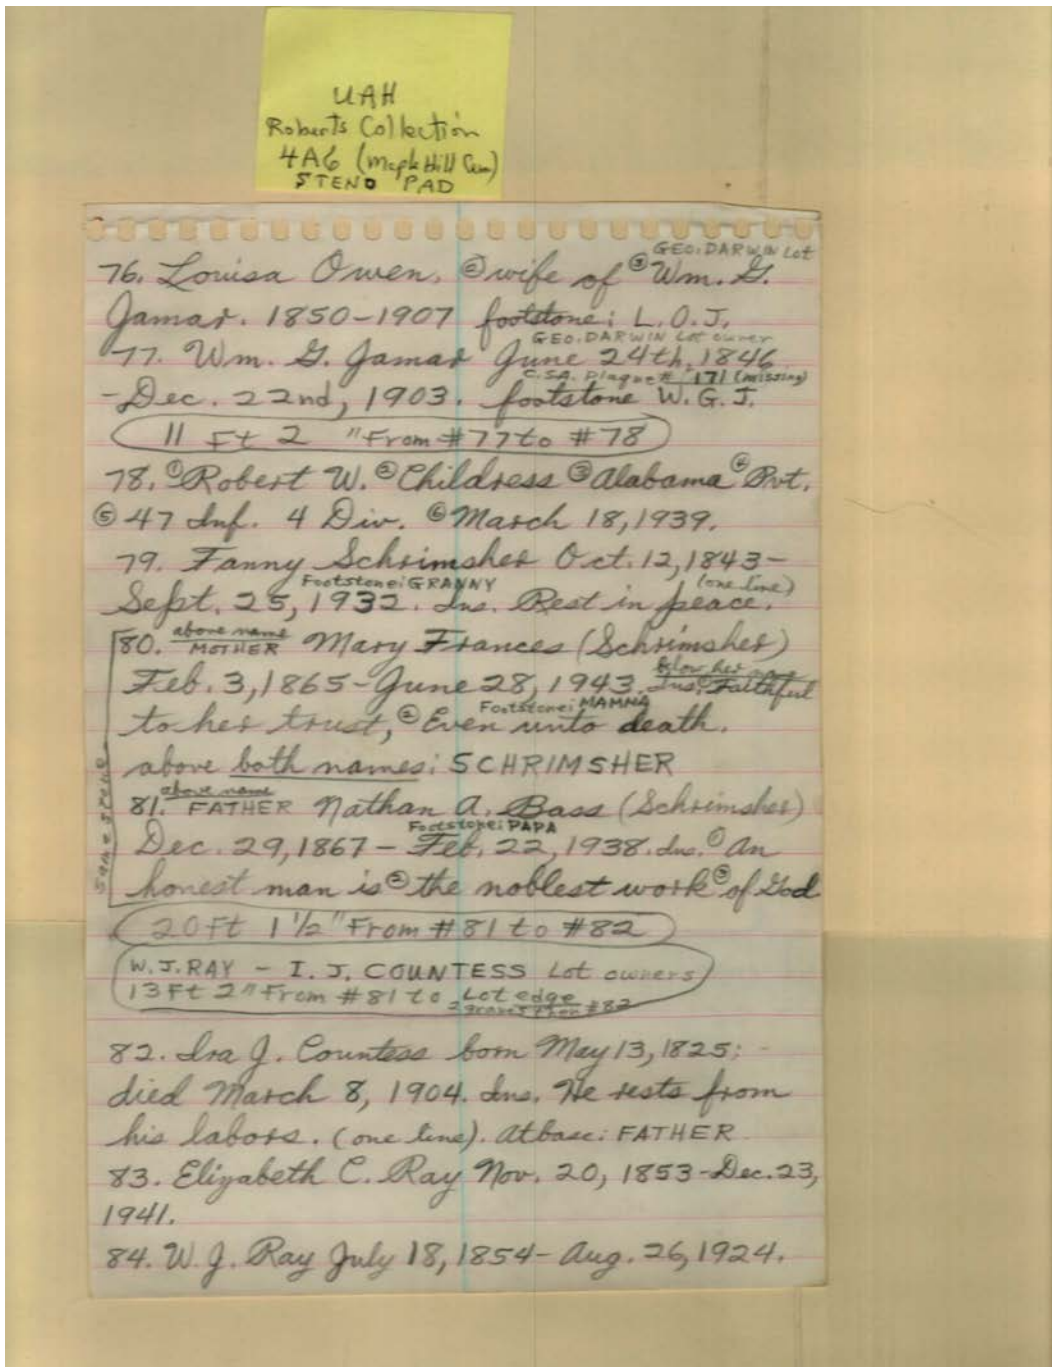 UAH
Roberts Collection
4A6 (Maple Hill Cem)
STENO PAD
GEO. DARWIN Lot
76. Louisa Owen. ② wife of ③ Wm. G.
Jamar. 1850-1907 footstone: L.O.J.
GEO. DARWIN Lot owner
77. Wm. G. Jamar June 24th, 1846
C.S.A. Plaque # 171 (missing)
-Dec. 22nd, 1903. footstone W.G.J.
11 Ft 2 " From #77 to #78
78. ① Robert W. ② Childress ③ Alabama ④ Pvt.
⑤ 47 Inf. 4 Div. ⑥ March 18, 1939.
79. Fanny Schrimsher Oct. 12, 1843-
Footstone: GRANNY (one line)
Sept. 25, 1932. Ins. Rest in peace.
above name
80. MOTHER Mary Frances (Schrimsher)
below her name
Feb. 3, 1865-June 28, 1943. Ins. Faithful
Footstone: MAMNA
to her trust, ② Even unto death.
above both names: SCHRIMSHER
same stone
above name
81. FATHER Nathan A. Bass (Schrimsher)
Footstone: PAPA
Dec. 29, 1867 - Feb. 22, 1938. Ins. ① An
honest man is ② the noblest work ③ of God
20 Ft 1 1/2" From #81 to #82
W.J. RAY - I.J. COUNTESS Lot owners
13 Ft 2" From #81 to Lot edge
2 graves then #82
82. Ira J. Countess born May 13, 1825;
died March 8, 1904. Ins. He rests from
his labors. (one line). At base: FATHER
83. Elizabeth C. Ray Nov. 20, 1853-Dec. 23,
1941.
84. W.J. Ray July 18, 1854-Aug. 26, 1924.